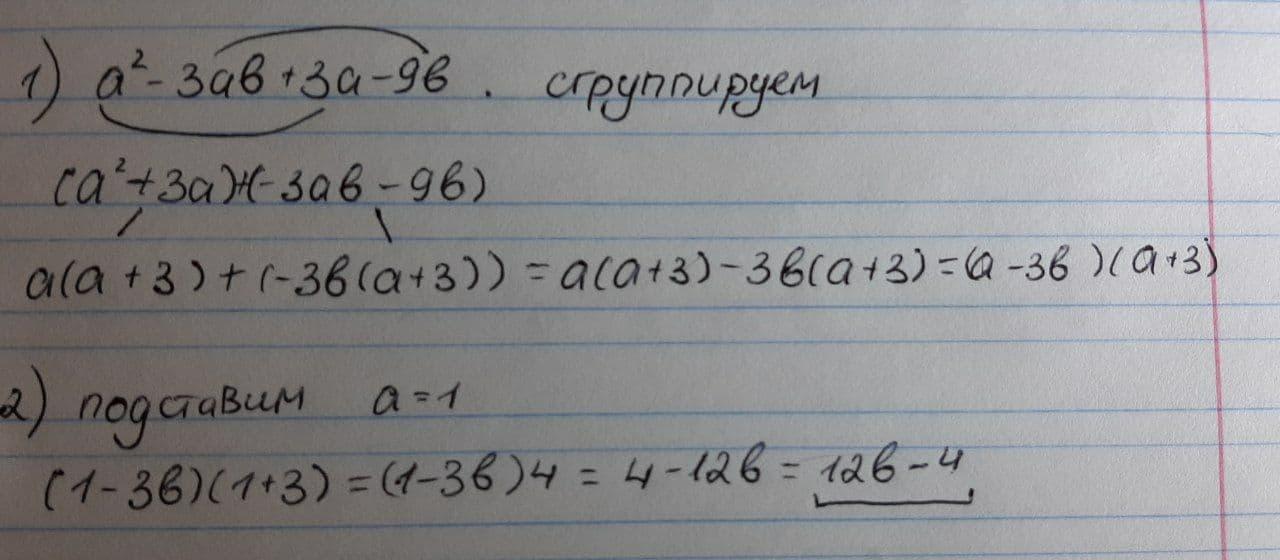 1) a²-3ab+3a-9b. сгруппируем
(a²+3a)+(-3ab-9b)
a(a+3)+(-3b(a+3))=a(a+3)-3b(a+3)=(a-3b)(a+3)
2) подставим a=1
(1-3b)(1+3)=(1-3b)4=4-12b=12b-4